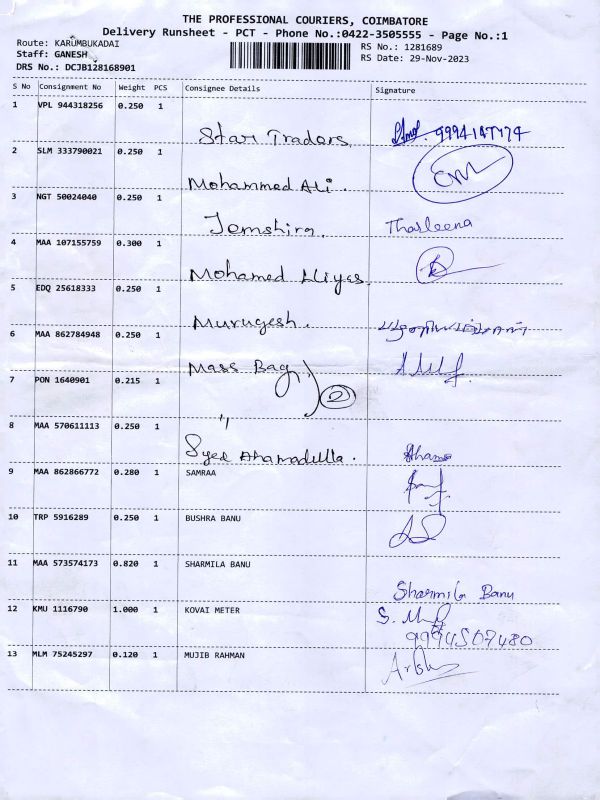 THE PROFESSIONAL COURIERS, COIMBATORE
Delivery Runsheet - PCT - Phone No.:0422-3505555 - Page No.:1
Route: KARUMBUKADAI
Staff: GANESH
DRS No.: DCJB128168901
RS No.: 1281689
RS Date: 29-Nov-2023
S No Consignment No Weight PCS Consignee Details Signature
1 VPL 944318256 0.250 1
Star Traders
2 SLM 333790021 0.250 1
Mohammed Ali.
3 NGT 50024040 0.250 1
Jemshira. Tharleena
4 MAA 107155759 0.300 1
Mohamed Iliyas.
5 EDQ 25618333 0.250 1
Murugesh.
6 MAA 862784948 0.250 1
Mass Bag 2
7 PON 1640901 0.215 1
"
8 MAA 570611113 0.250 1
Syed Ahamadulla.
9 MAA 862866772 0.280 1 SAMRAA
10 TRP 5916289 0.250 1 BUSHRA BANU
11 MAA 573574173 0.820 1 SHARMILA BANU
Sharmila Banu
12 KMU 1116790 1.000 1 KOVAI METER
9994507480
13 MLM 75245297 0.120 1 MUJIB RAHMAN